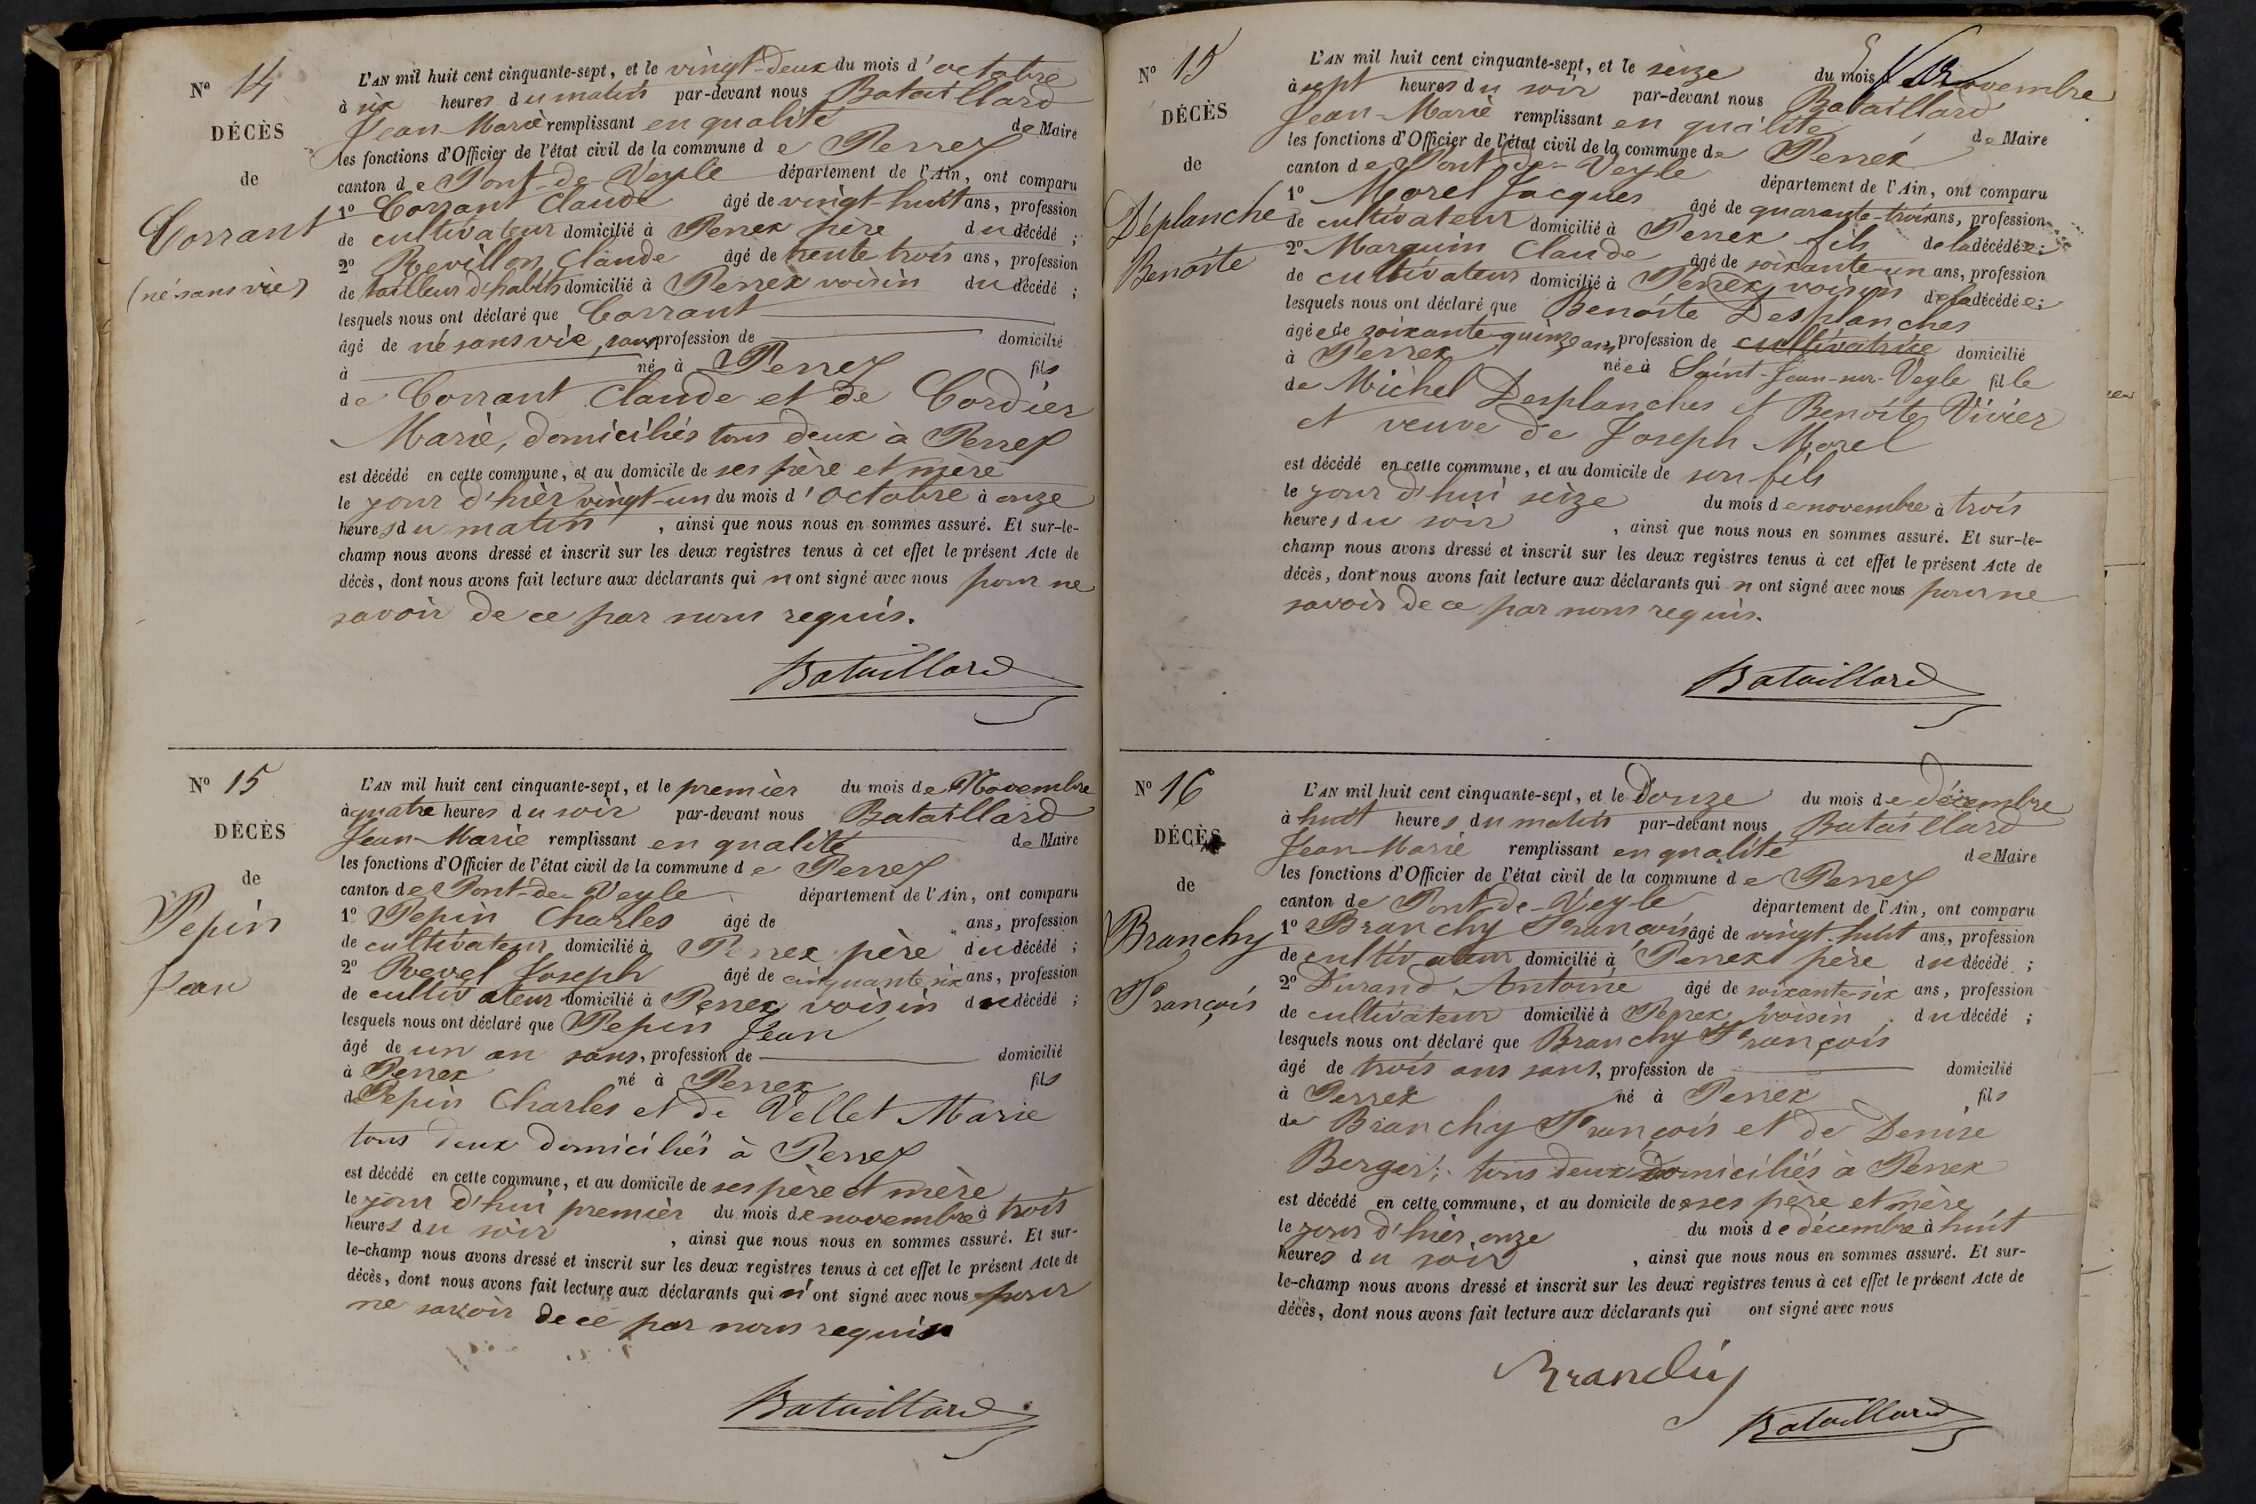 Nº 14
DÉCÈS
de
Corrant
(né sans vie)
L'AN mil huit cent cinquante-sept, et le vingt-deux du mois d'octobre
à six heures du matin par-devant nous Bataillard
Jean-Marie remplissant en qualité de Maire
les fonctions d'Officier de l'état civil de la commune de Perrex
canton de Pont-de-Veyle département de l'Ain, ont comparu
1º Corrant Claude âgé de vingt-huit ans, profession
de cultivateur domicilié à Perrex père du décédé ;
2º Revillon Claude âgé de trente trois ans, profession
de tailleur d'habits domicilié à Perrex voisin du décédé ;
lesquels nous ont déclaré que Corrant
âgé de né sans vie, sans profession de domicilié
à né à Perrex fils
de Corrant Claude et de Cordier
Marie, domiciliés tous deux à Perrex
est décédé en cette commune, et au domicile de ses père et mère
le jour d'hier vingt-un du mois d'octobre à onze
heures du matin, ainsi que nous nous en sommes assuré. Et sur-le-
champ nous avons dressé et inscrit sur les deux registres tenus à cet effet le présent Acte de
décès, dont nous avons fait lecture aux déclarants qui n ont signé avec nous pour ne
savoir de ce par nous requis.
Bataillard
Nº 15
DÉCÈS
de
Pepin
Jean
L'AN mil huit cent cinquante-sept, et le premier du mois de Novembre
à quatre heures du soir par-devant nous Bataillard
Jean-Marie remplissant en qualité de Maire
les fonctions d'Officier de l'état civil de la commune de Perrex
canton de Pont-de-Veyle département de l'Ain, ont comparu
1º Pepin Charles âgé de ans, profession
de cultivateur domicilié à Perrex père du décédé ;
2º Revel Joseph âgé de cinquante six ans, profession
de cultivateur domicilié à Perrex voisin du décédé ;
lesquels nous ont déclaré que Pepin Jean
âgé de un an sans, profession de domicilié
à Perrex né à Perrex fils
de Pepin Charles et de Vellet Marie
tous deux domiciliés à Perrex
est décédé en cette commune, et au domicile de ses père et mère
le jour d'hui premier du mois de novembre à trois
heures du soir, ainsi que nous nous en sommes assuré. Et sur-
le-champ nous avons dressé et inscrit sur les deux registres tenus à cet effet le présent Acte de
décès, dont nous avons fait lecture aux déclarants qui n' ont signé avec nous pour
ne savoir de ce par nous requis
Bataillard
Nº 15
DÉCÈS
de
Déplanche
Benoite
L'AN mil huit cent cinquante-sept, et le seize du mois novembre
à sept heures du soir par-devant nous Bataillard
Jean-Marie remplissant en qualité de Maire
les fonctions d'Officier de l'état civil de la commune de Perrex
canton de Pont-de-Veyle département de l'Ain, ont comparu
1º Morel Jacques âgé de quarante-trois ans, profession
de cultivateur domicilié à Perrex fils de la décédée ;
2º Marguin Claude âgé de soixante-un ans, profession
de cultivateur domicilié à Perrex, voisin de la décédée ;
lesquels nous ont déclaré que Benoite Desplanches
âgée de soixante quinze ans, profession de cultivatrice domicilié
à Perrex née à Saint-Jean-sur-Veyle fille
de Michel Desplanches et Benoite Vivier
et veuve de Joseph Morel
est décédé en cette commune, et au domicile de son fils
le jour d'hui seize du mois de novembre à trois
heures du soir, ainsi que nous nous en sommes assuré. Et sur-le-
champ nous avons dressé et inscrit sur les deux registres tenus à cet effet le présent Acte de
décès, dont nous avons fait lecture aux déclarants qui n ont signé avec nous pour ne
savoir de ce par nous requis.
Bataillard
Nº 16
DÉCÈS
de
Branchy
François
L'AN mil huit cent cinquante-sept, et le Douze du mois de décembre
à huit heures du matin par-devant nous Bataillard
Jean-Marie remplissant en qualité de Maire
les fonctions d'Officier de l'état civil de la commune de Perrex
canton de Pont-de-Veyle département de l'Ain, ont comparu
1º Branchy François âgé de vingt-huit ans, profession
de cultivateur domicilié à Perrex père du décédé ;
2º Durand Antoine âgé de soixante-six ans, profession
de cultivateur domicilié à Perrex, voisin du décédé ;
lesquels nous ont déclaré que Branchy François
âgé de trois ans sans, profession de domicilié
à Perrex né à Perrex fils
de Branchy François et de Denise
Berger ; tous deux domiciliés à Perrex
est décédé en cette commune, et au domicile de ses père et mère
le jour d'hier onze du mois de décembre à huit
heures du soir, ainsi que nous nous en sommes assuré. Et sur-
le-champ nous avons dressé et inscrit sur les deux registres tenus à cet effet le présent Acte de
décès, dont nous avons fait lecture aux déclarants qui ont signé avec nous
Branchy
Bataillard